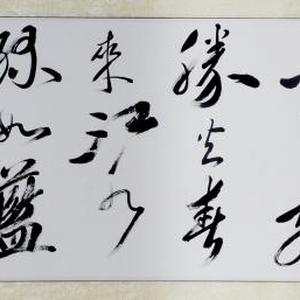 勝火春
來江水
綠如藍